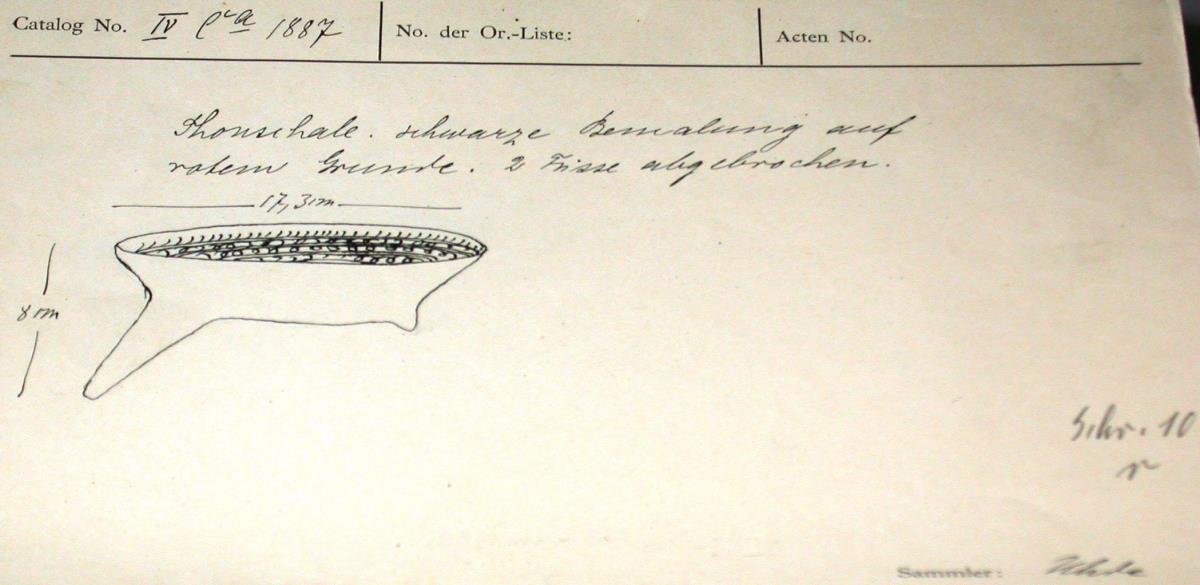 Catalog No. IV Ca 1887
No. der Or.-Liste:
Acten No.
Thonschale. schwarze Bemalung auf
rotem Grunde. 2 Füsse abgebrochen.
17,3 cm
8 cm
Schr. 10
r
Sammler: Uhde